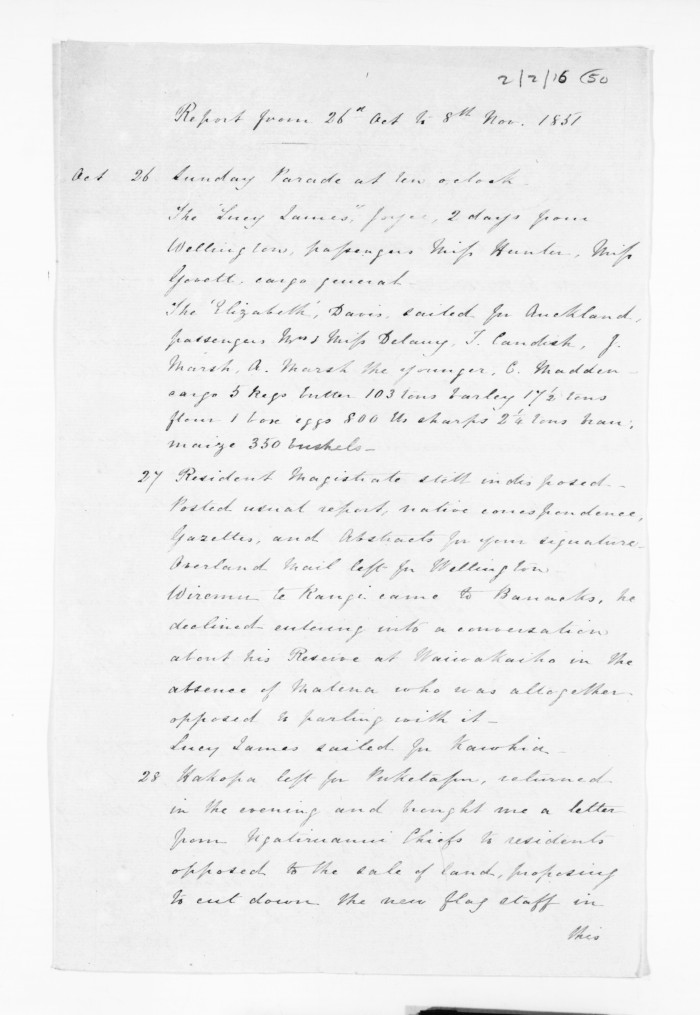 2/2/16 (50
Report from 26th Oct to 8th Nov. 1851
Oct 26 Sunday Parade at ten o'clock.
The "Lucy James", Joyce, 2 days from
Wellington, passengers Miss Hunter, Miss
Govett, cargo general.
The 'Elizabeth', Davis, sailed for Auckland,
passengers Mrs & Miss Delany, T. Candish, J.
Marsh, A. Marsh the younger, C. Madden -
cargo 5 kegs butter 103 tons barley 17½ tons
flour 1 box eggs 800 lbs sharps 2¼ tons bran,
maize 350 bushels -
27 Resident Magistrate still indisposed -
Posted usual report, native correspondence,
Gazettes, and Abstracts for your signature -
Overland Mail left for Wellington -
Wiremu te Rangi came to Barracks, he
declined entering into a conversation
about his Reserve at Waiwakaiho in the
absence of Matena who was altogether
opposed to parting with it -
Lucy James sailed for Kawhia -
28 Hakopa left for Puketapu, returned
in the evening and brought me a letter
from Ngatiruanui Chiefs to residents
opposed to the sale of land, proposing
to cut down the new flag staff in
this